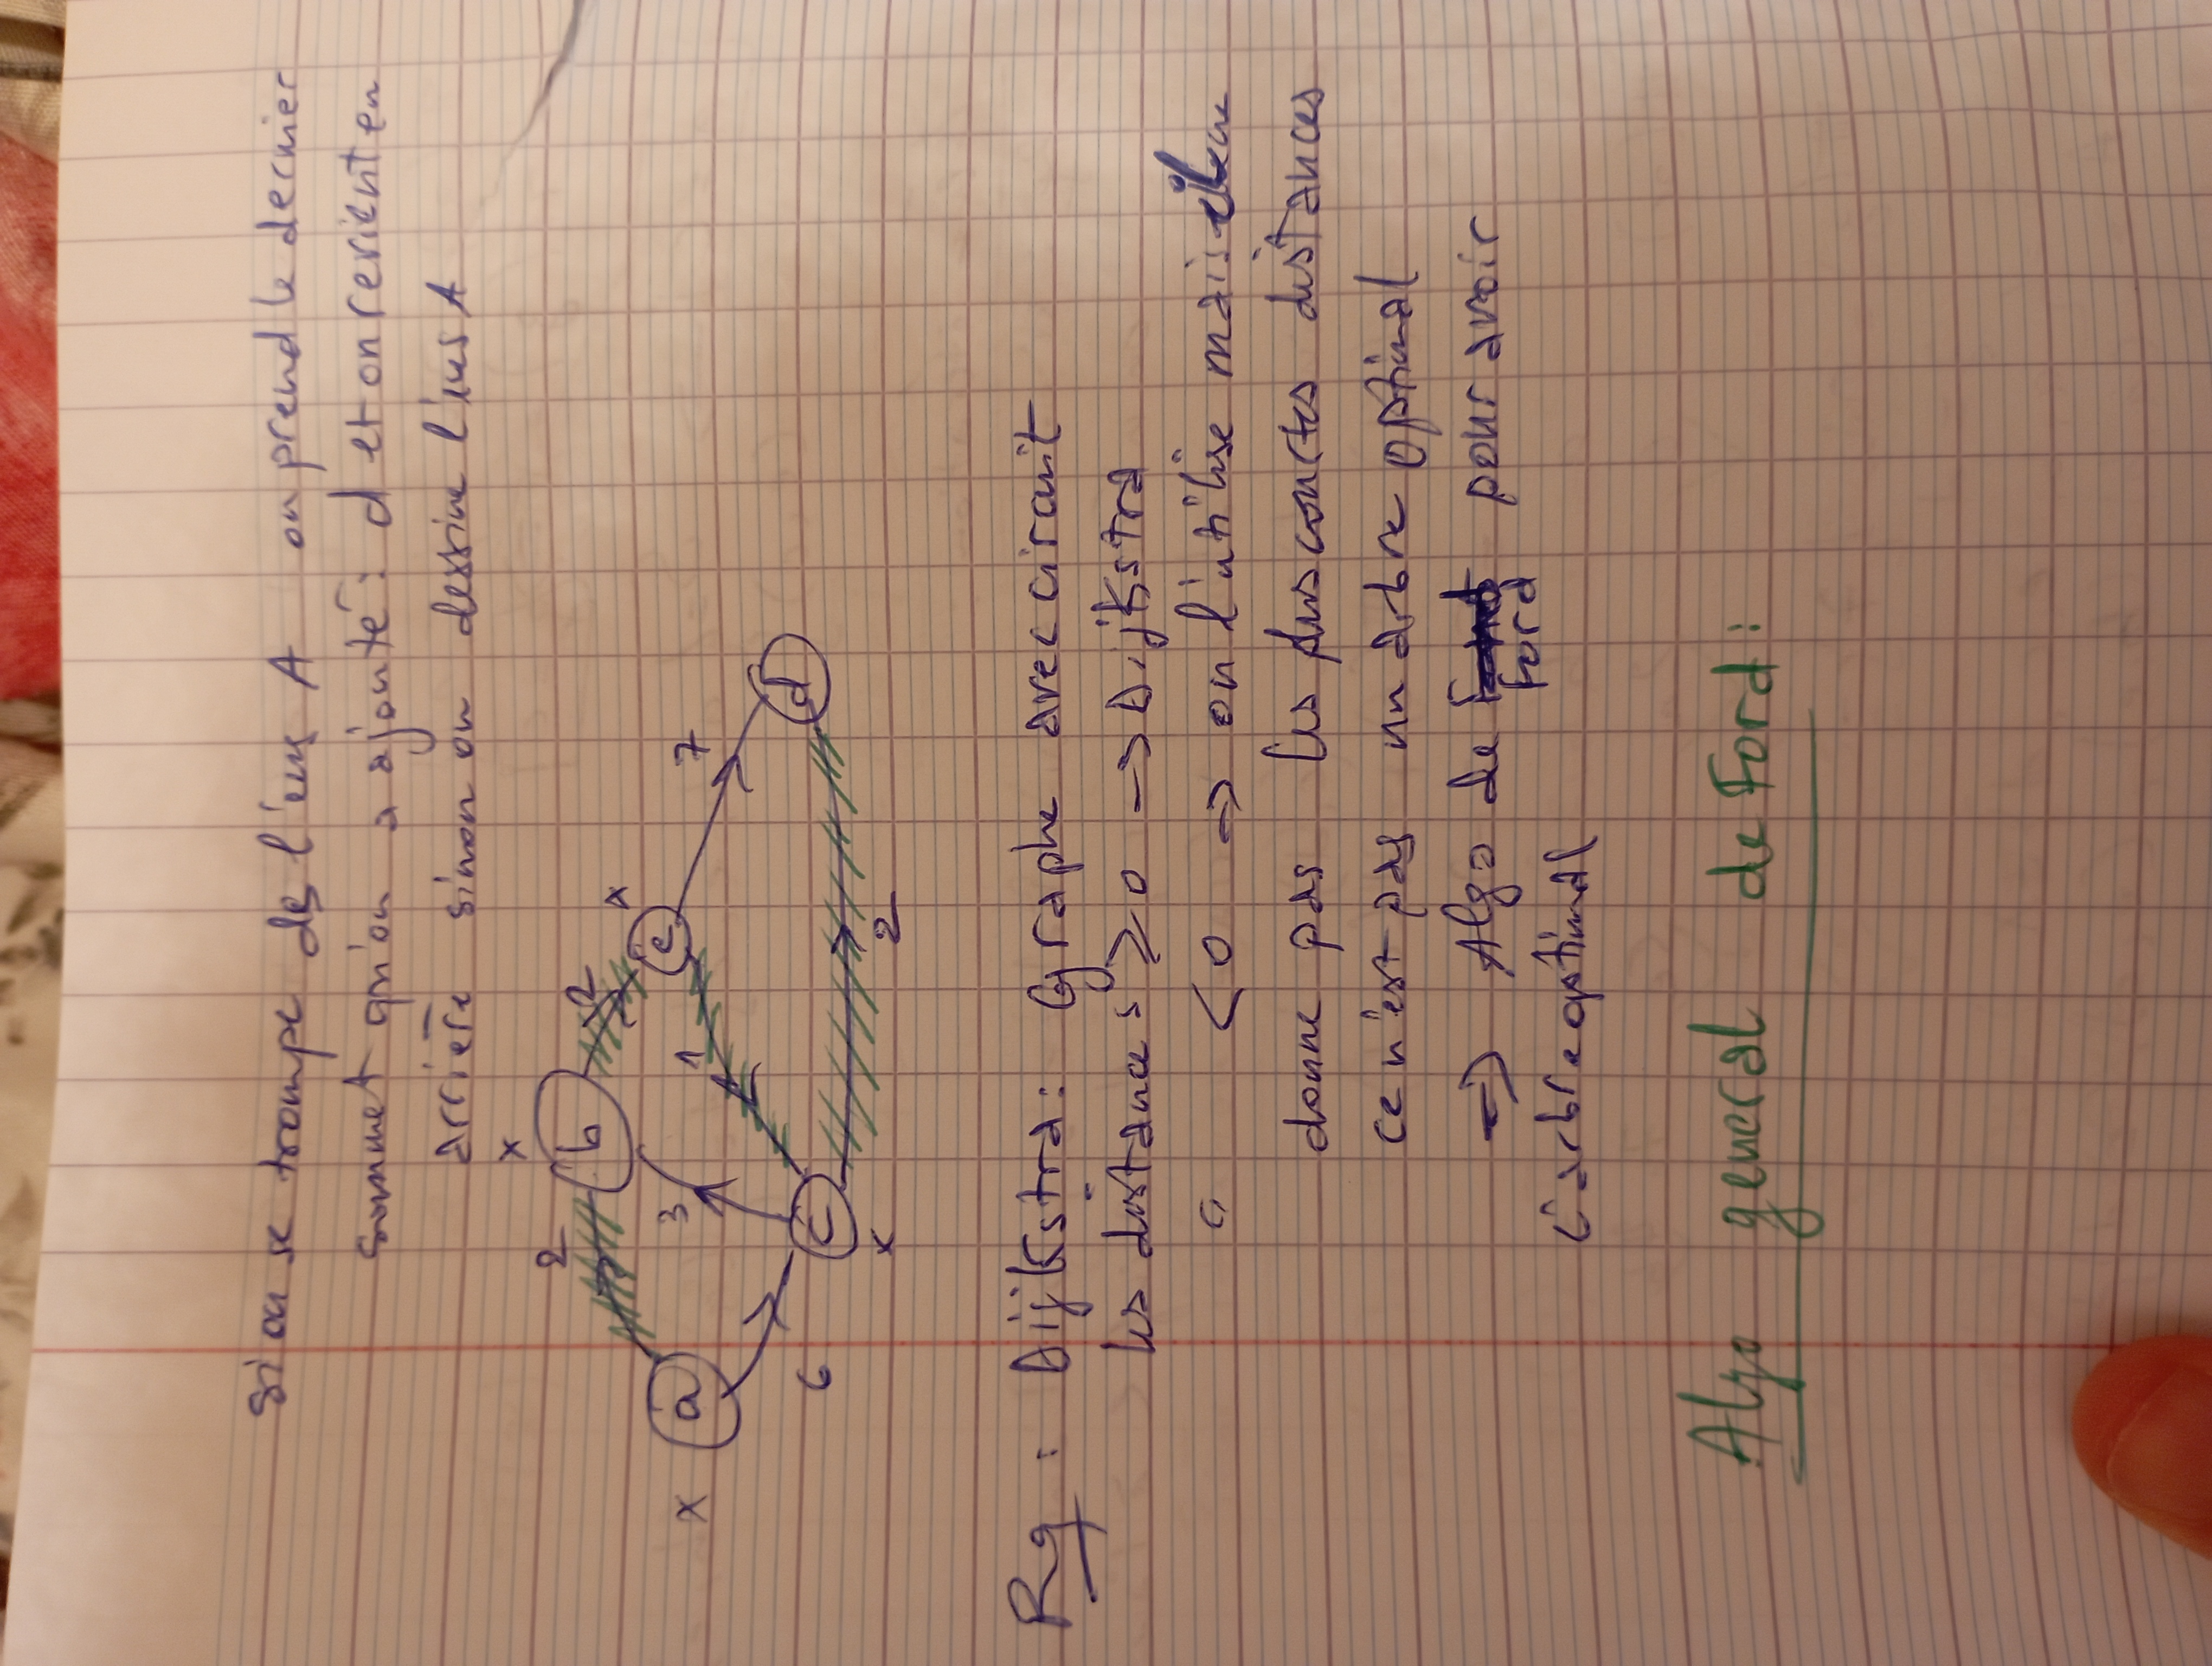 si on se trompe de l'ens A on prend le dernier
sommet qu'on a ajouté : d et on revient en
arrière sinon on dessine l'ens A
x a 2 b x
6 3 2
x c 1 e x
2 7 d
Rq : Dijkstra : Graphe avec circuit
les distances ≥ 0 → Dijkstra
" < 0 → on l'utilise mais elle me
donne pas les plus courtes distances
ce n'est pas un arbre optimal
⇒ Algo de Ford pour avoir
l'arbre optimal
Algo general de Ford :